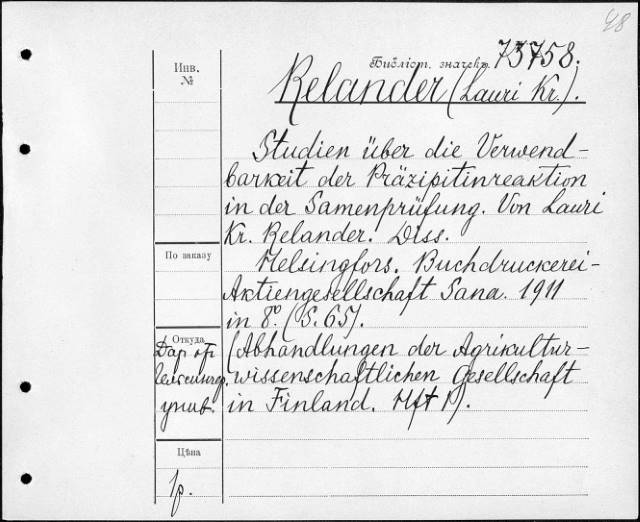 48
Библіот. значекъ 73758.
Инв.
№
Relander (Lauri Kr.).
Studien über die Verwend-
barkeit der Präzipitinreaktion
in der Samenprüfung. Von Lauri
Kr. Relander. Diss.
По заказу
Helsingfors. Buchdruckerei-
Aktiengesellschaft Sana. 1911
in 8º. (S. 65).
Откуда
Дар от
Гельсингф.
унив.
(Abhandlungen der Agrikultur-
wissenschaftlichen Gesellschaft
in Finland. Hft 1).
Цѣна
1р.